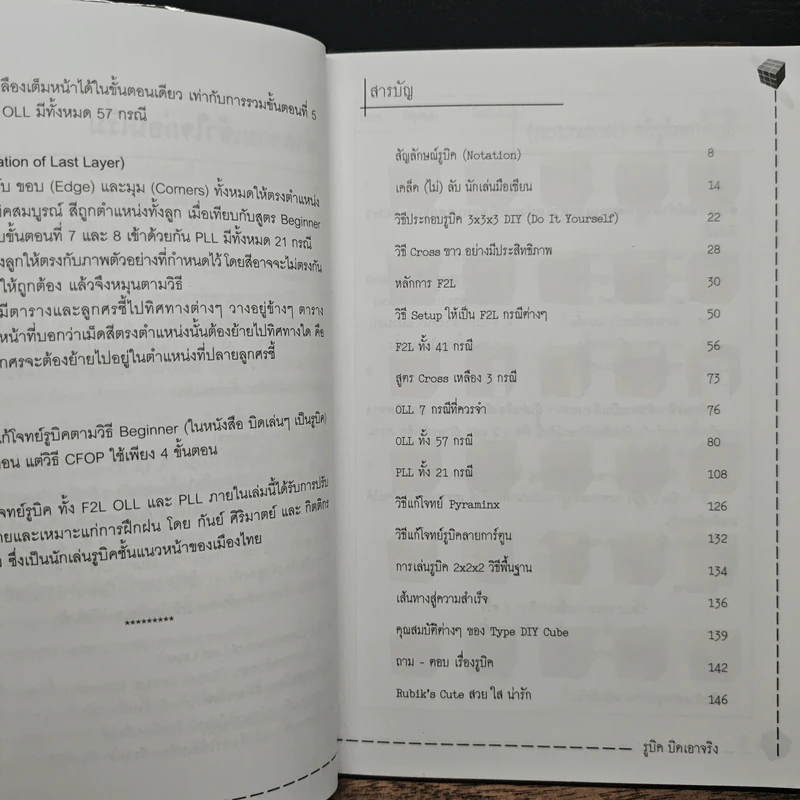 ลืองเต็มหน้าได้ในขั้นตอนเดียว เท่ากับการรวมขั้นตอนที่ 5
OLL มีทั้งหมด 57 กรณี
ation of Last Layer)
ับ ขอบ (Edge) และมุม (Corners) ทั้งหมดให้ตรงตำแหน่ง
ิคสมบูรณ์ สีถูกตำแหน่งทั้งลูก เมื่อเทียบกับสูตร Beginner
บขั้นตอนที่ 7 และ 8 เข้าด้วยกัน PLL มีทั้งหมด 21 กรณี
งลูกให้ตรงกับภาพตัวอย่างที่กำหนดไว้ โดยสีอาจจะไม่ตรงกัน
ให้ถูกต้อง แล้วจึงหมุนตามวิธี
มีตารางและลูกศรชี้ไปทิศทางต่างๆ วางอยู่ข้างๆ ตาราง
หน้าที่บอกว่าเม็ดสีตรงตำแหน่งนั้นต้องย้ายไปทิศทางใด คือ
ูกศรจะต้องย้ายไปอยู่ในตำแหน่งที่ปลายลูกศรชี้
แก้โจทย์รูบิคตามวิธี Beginner (ในหนังสือ บิดเล่นๆ เป็นรูบิค)
อน แต่วิธี CFOP ใช้เพียง 4 ขั้นตอน
จทย์รูบิค ทั้ง F2L OLL และ PLL ภายในเล่มนี้ได้รับการปรับ
ายและเหมาะแก่การฝึกฝน โดย กันย์ ศิริมาตย์ และ กิตติกร
ซึ่งเป็นนักเล่นรูบิคชั้นแนวหน้าของเมืองไทย
*********
สารบัญ
สัญลักษณ์รูบิค (Notation) 8
เคล็ด (ไม่) ลับ นักเล่นมือเซียน 14
วิธีประกอบรูบิค 3x3x3 DIY (Do It Yourself) 22
วิธี Cross ขาว อย่างมีประสิทธิภาพ 28
หลักการ F2L 30
วิธี Setup ให้เป็น F2L กรณีต่างๆ 50
F2L ทั้ง 41 กรณี 56
สูตร Cross เหลือง 3 กรณี 73
OLL 7 กรณีที่ควรจำ 76
OLL ทั้ง 57 กรณี 80
PLL ทั้ง 21 กรณี 108
วิธีแก้โจทย์ Pyraminx 126
วิธีแก้โจทย์รูบิคลายการ์ตูน 132
การเล่นรูบิค 2x2x2 วิธีพื้นฐาน 134
เส้นทางสู่ความสำเร็จ 136
คุณสมบัติต่างๆ ของ Type DIY Cube 139
ถาม - ตอบ เรื่องรูบิค 142
Rubik's Cute สวย ใส น่ารัก 146
รูบิค บิดเอาจริง